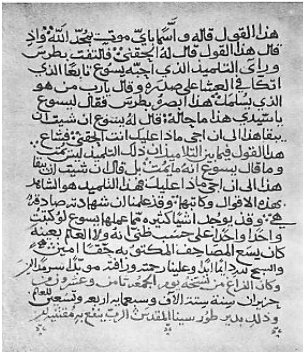 هذا القول قاله و اشما باي موته يمجد الله واد
قال هذا القول قال له الحقني فالتفت بطرس
وراى التلميذ الذي احبه يسوع تابعا الذي
اتكا في العشا على صدره وقال يارب من هو
الذي يسلمك هذا ابصره بطرس فقال ليسوع
يا سيدي هذا ماحاله قال له يسوع ان شيت ان
يبقا هذا الى ان اجي ماذا عليك انت الحقني فشاع
هذا القول فيما بين التلاميذ ان ذلك التلميذ ليس يموت
وما قال يسوع انه ما يموت بل قال ان شيت ان يبقا
هذا الى ان اجي ماذا عليك هذا التلميذ هو الشاهد
بهذه الاقوال وكاتبها وقد علمنا ان شهادته صادقة
هي وقد يوجد اشيا كثيرة مما عملها يسوع لو كتبت
واحدا واحدا على حسب ظني انه ولا العالم بعينه
كان يسع المصاحف المكتوبه حقا امين
والسبح لله دايما ابدا وعلينا رحمته ورافته
وكان الفراغ من نسخه يوم الجمعه ثامن وعشرون من
حزيران سنة ستة الاف وسبعمايه اربعه وتسعين للعالم
وذلك بدير طور سينا المقدس الرب ينفع به مقتنيه